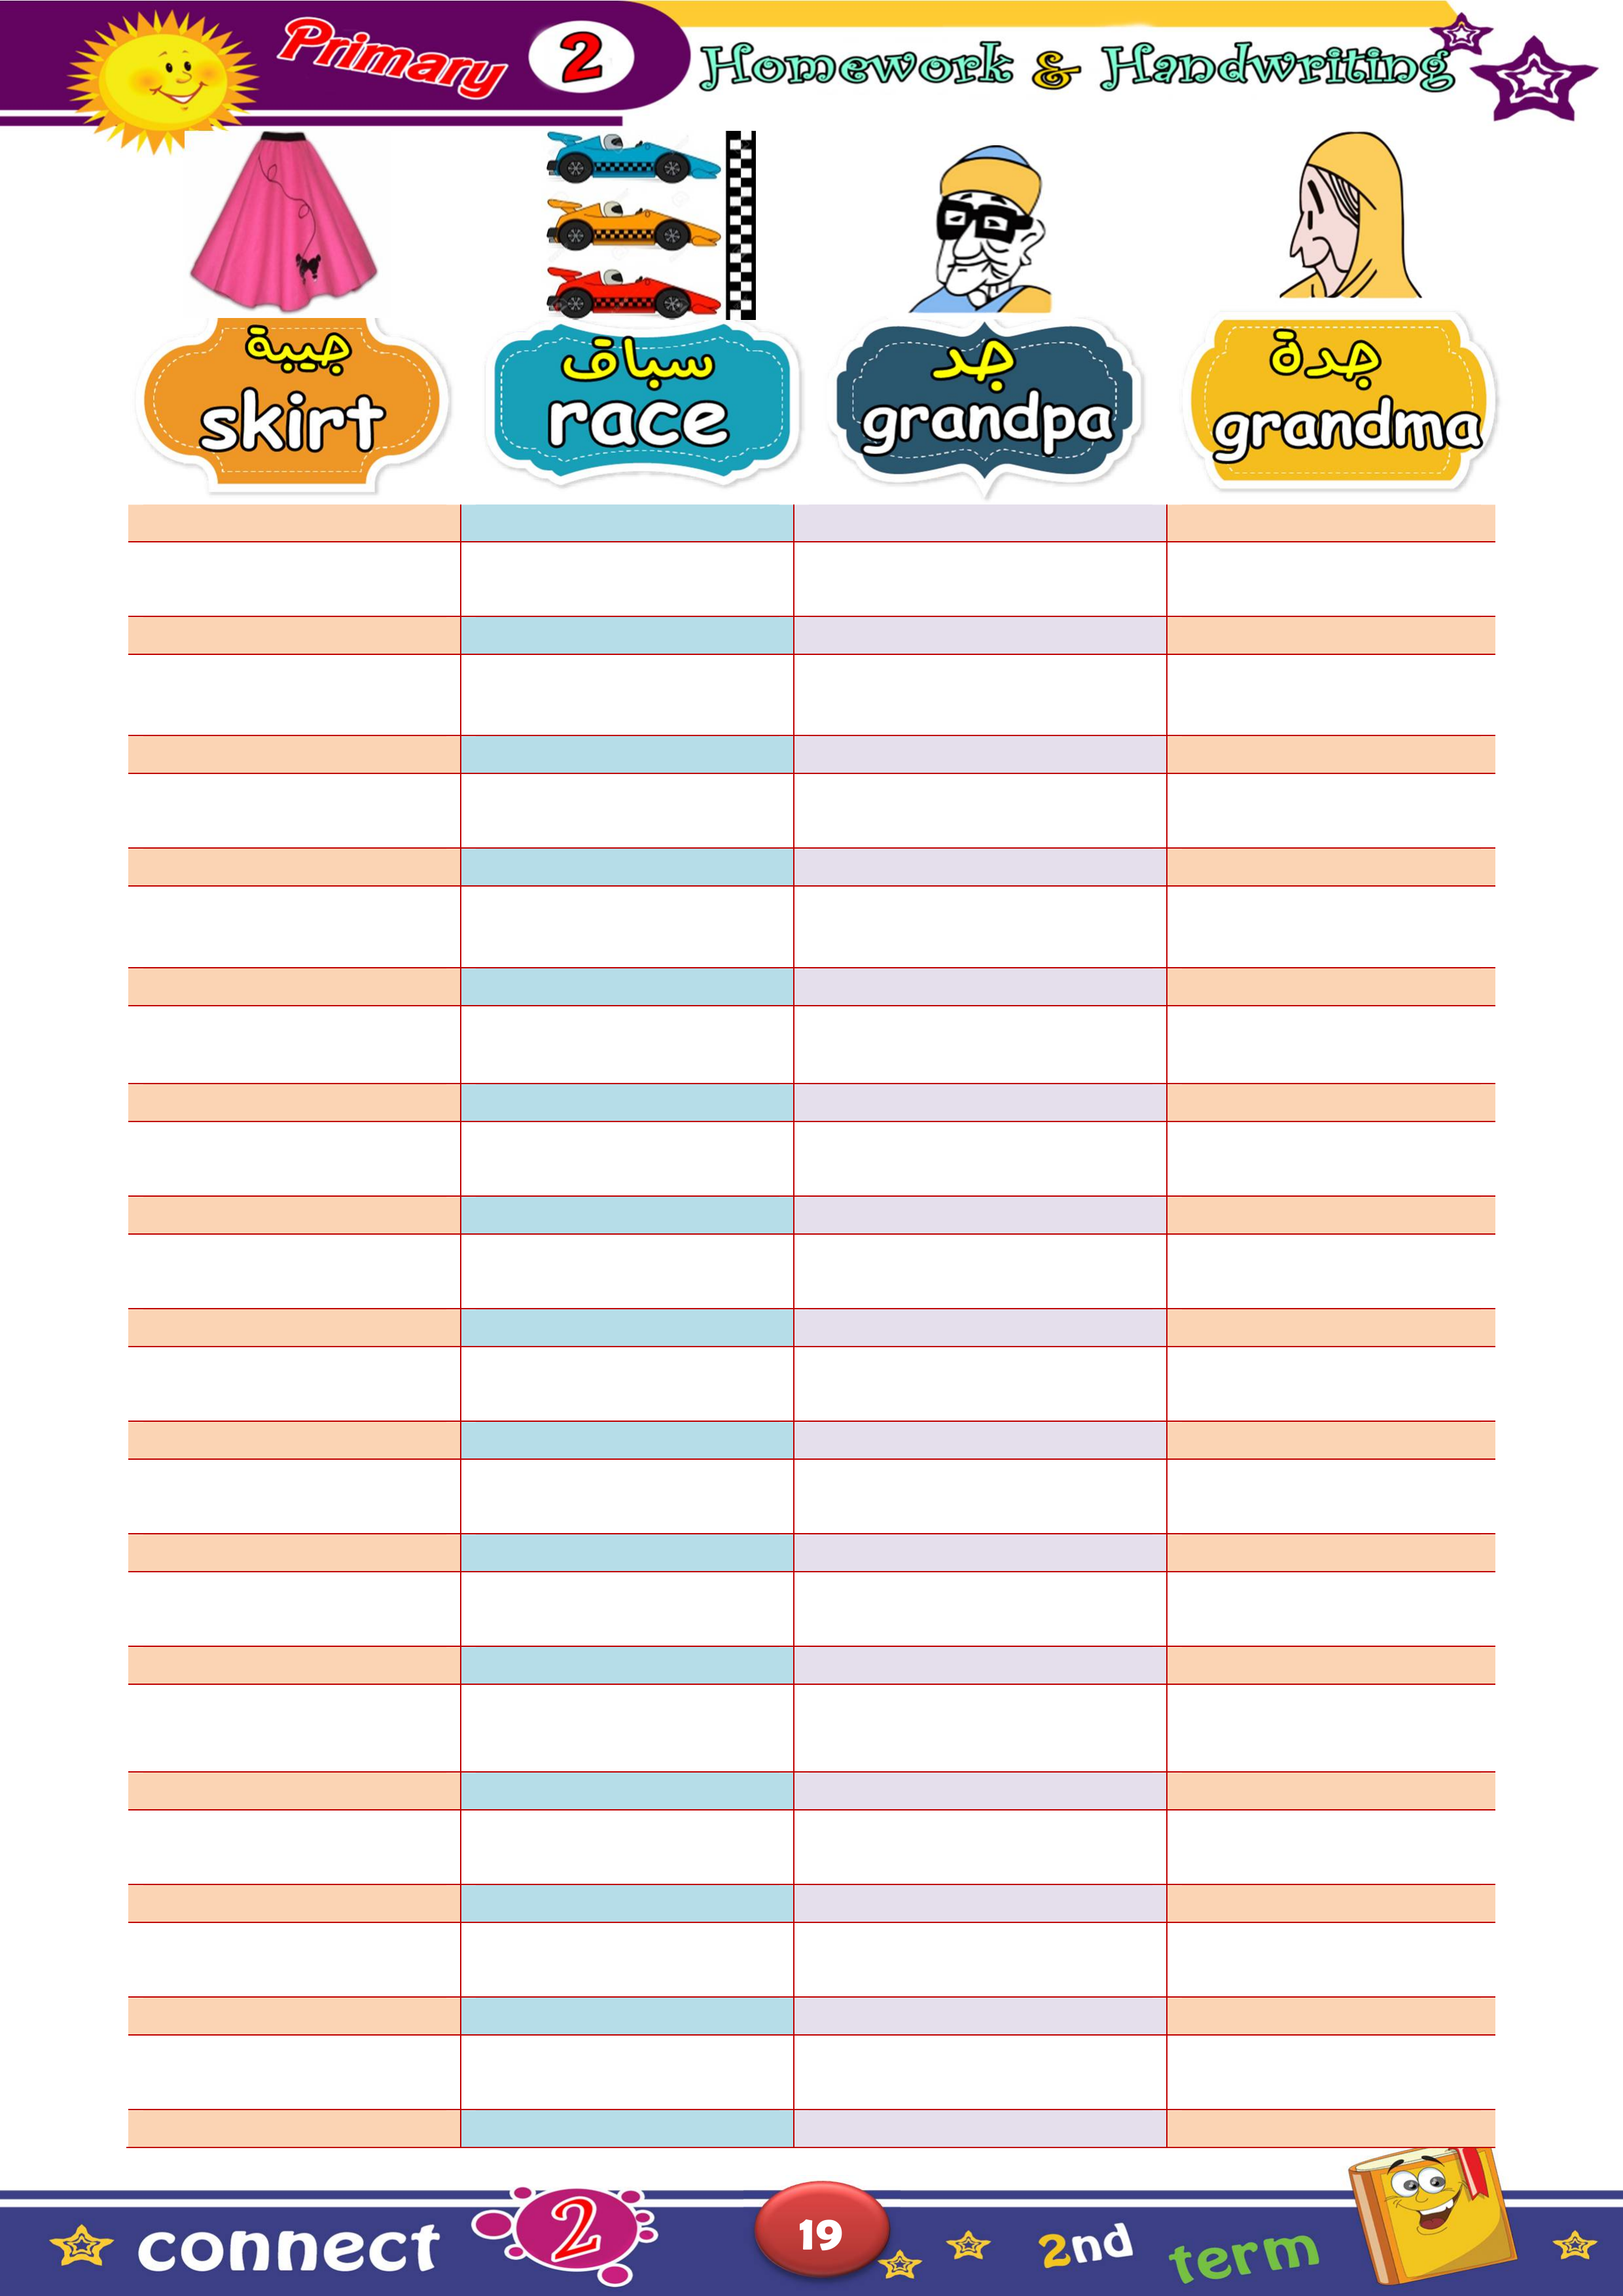 Primary 2 Homework & Handwriting
جيبة
skirt
سباق
race
جد
grandpa
جدة
grandma
connect 2 19 2nd term